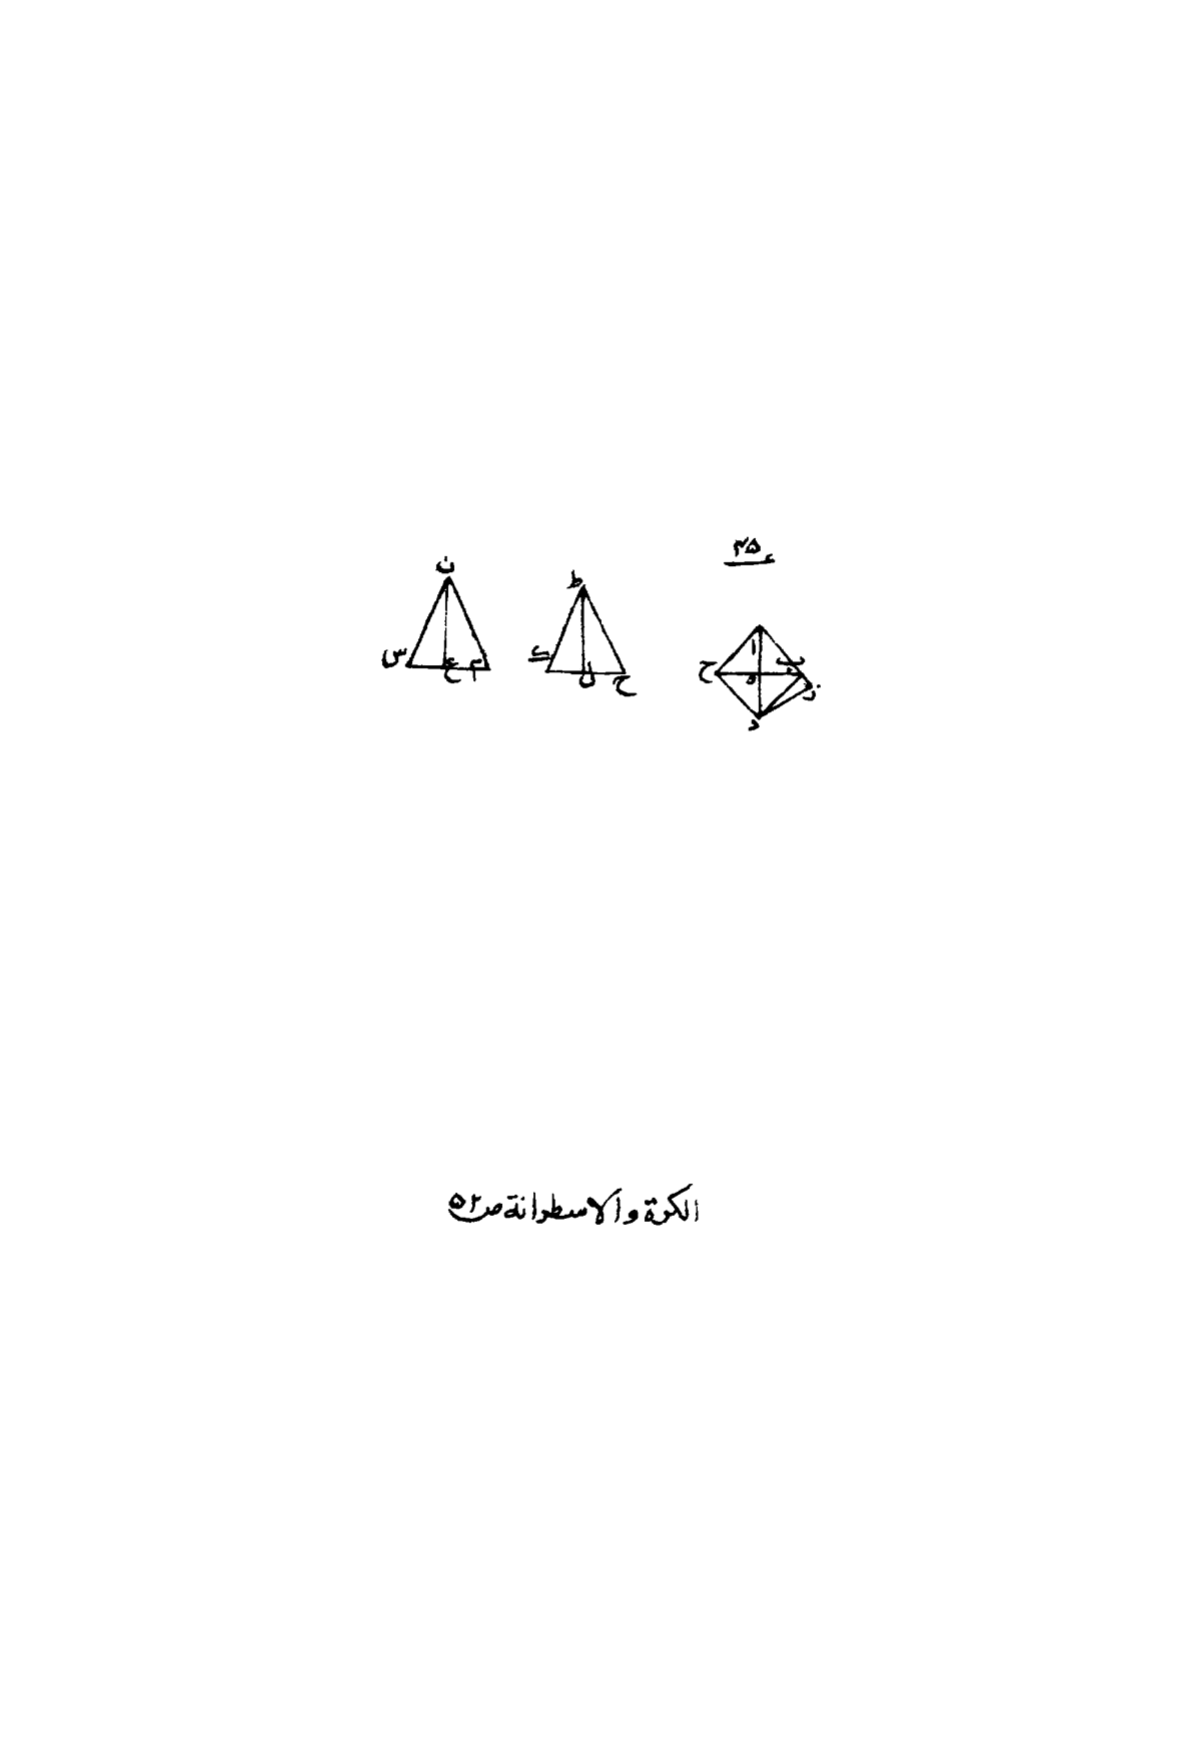 ٤٥
ن
ط
س
ع
م
ك
ل
ح
ا
ب
ح
ه
ز
د
الكرة والاسطوانة ص٥٢